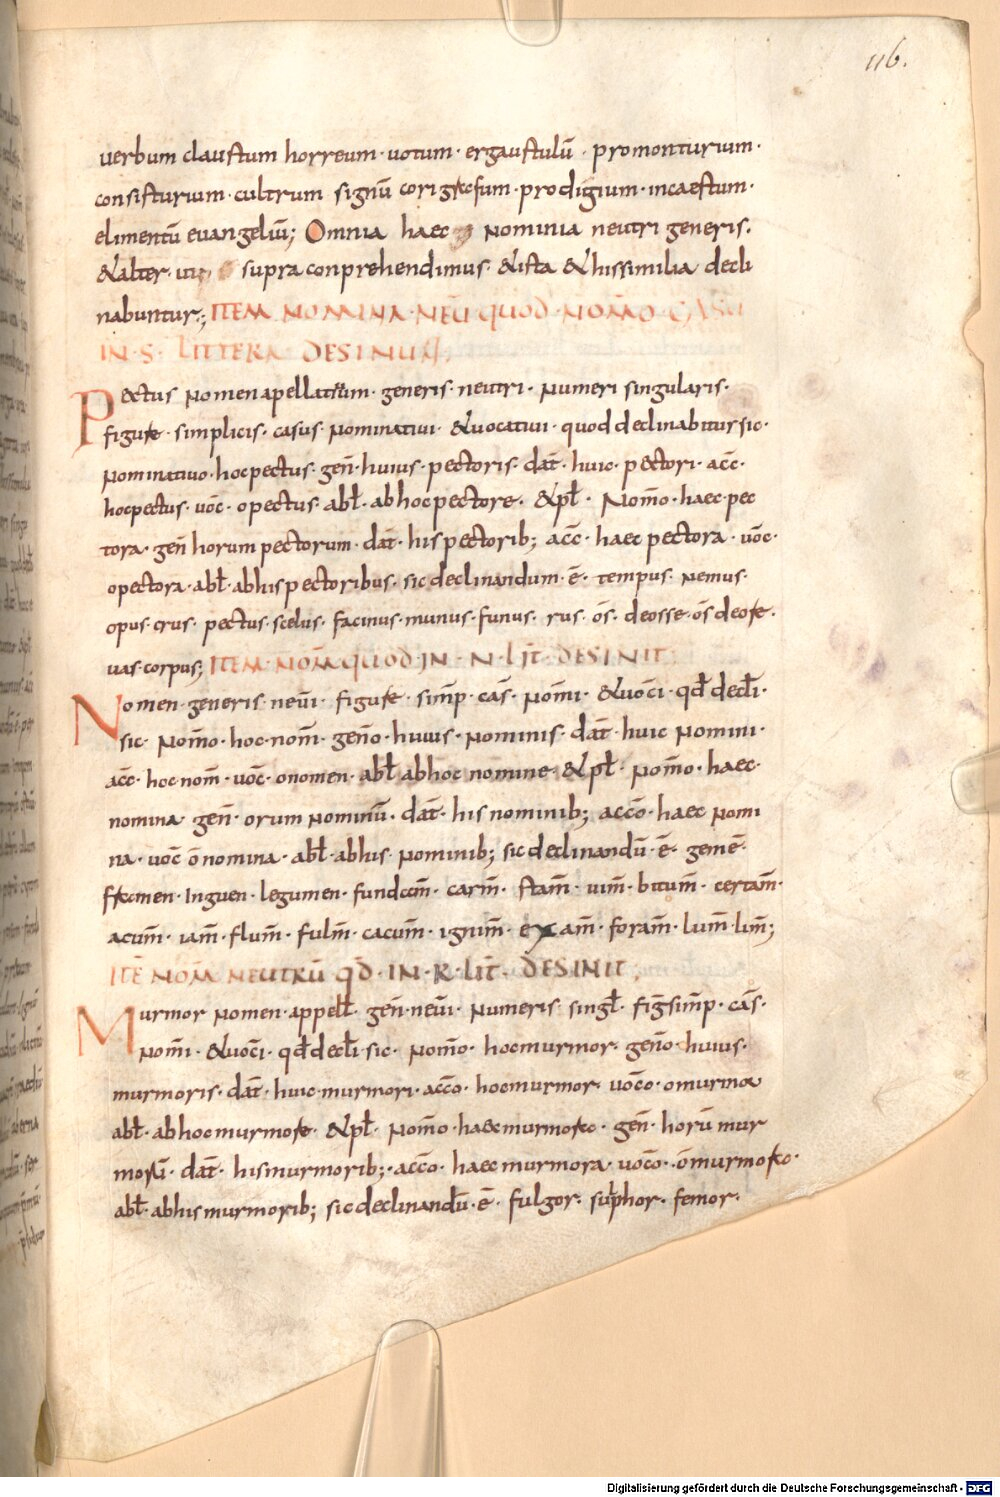 116.
uerbum claustum horreum · uotum · ergaustulū · promonturium ·
consisturium · cultrum signū corigracsum · prodigium · incaestum ·
elimentū euangeliū; Omnia haec nominia neutri generis.
&alter · ut supra conprehendimus · &ista &hissimilia decli
nabuntur; ITEM NOMINA · NEŪ QUOD · NOM̄O CASU
IN · S · LITTERA DESINUNT
Pectus nomen apellatiuum · generis · neutri · numeri singularis ·
figurae · simplicis · casus nominatiui · &uocatiui · quod declinabitur sic ·
nominatiuo · hoc pectus · gen̄ · huius · pectoris · dat̄ · huic · pectori · acc̄ ·
hoc pectus · uoc̄ · o pectus · abl̄ · ab hoc pectore · &pl̄ · Nom̄o · haec · pec
tora · gen̄ horum pectorum · dat̄ · his pectorib; acc̄ · haec pectora · uoc̄ ·
o pectora · abl̄ · abhis pectoribus · sic declinandum · ē · tempus · nemus ·
opus · crus · pectus · scelus · facinus · munus · funus · rus · os̄ · deosse · os̄ deore ·
uas · corpus; ITEM · NOM̄ QUOD IN · N · LIT̄ · DESINIT;
Nomen · generis · neūi · figurae · simp̄ · cas̄ · nom̄i · &uoc̄i · qd̄ decl̄i ·
sic · nom̄o · hoc · nom̄ · gen̄o · huius · nominis · dat̄ · huic nomini ·
acc̄ · hoc nom̄ · uoc̄ · onomen · abl̄ abhoc nomine · &pl̄ · nom̄o · haec ·
nomina gen̄ · orum nominū · dat̄ · his nominib; acc̄o · haec nomi
na · uoc̄ ō nomina · abl̄ · abhis · nominib; sic declinandū · ē · gemē ·
fragmen · Inguen · legumen · fundam̄ · carm̄ · stam̄ · uim̄ · bitum̄ · certam̄ ·
acum̄ · iam̄ · flum̄ · fulm̄ · cacum̄ · ignim̄ · exam̄ · foram̄ · lum̄ · lim̄;
ITĒ NOM̄ NEUTRŪ QD̄ · IN · R · LIT̄ · DESINIT;
Murmor nomen · appell̄ · gen̄ · neūi · numeris · singl̄ · fiḡ simp̄ · cas̄ ·
nom̄i · &uoc̄i · qd̄ decl̄i · sic · nom̄o · hoc murmor · gen̄o · huius ·
murmoris · dat̄ · huic · murmori · acc̄o · hoc murmor · uoc̄o · o murmor
abl̄ · ab hoc murmore · &pl̄ · nom̄o · haec murmora · gen̄ · horū mur
morū · dat̄ · his murmorib; · acc̄o · haec murmora · uoc̄o · ō murmora ·
abl̄ · abhis murmorib; sic declinandū · ē · fulgor · sulphor · femor ·
Digitalisierung gefördert durch die Deutsche Forschungsgemeinschaft - DFG